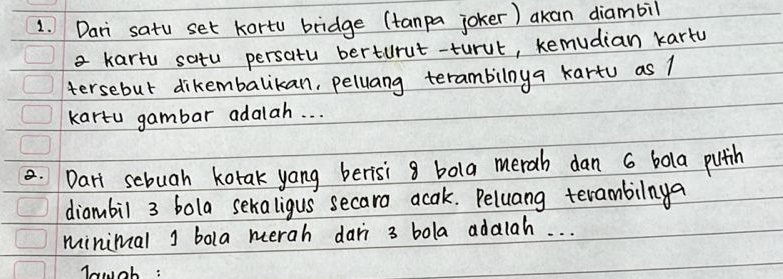 1. Dari satu set kartu bridge (tanpa joker) akan diambil
2 kartu satu persatu berturut-turut, kemudian kartu
tersebut dikembalikan, peluang terambilnya kartu as 1
kartu gambar adalah...
2. Dari sebuah kotak yang berisi 8 bola merah dan 6 bola putih
diambil 3 bola sekaligus secara acak. Peluang terambilnya
minimal 1 bola merah dari 3 bola adalah ...
Jawab :